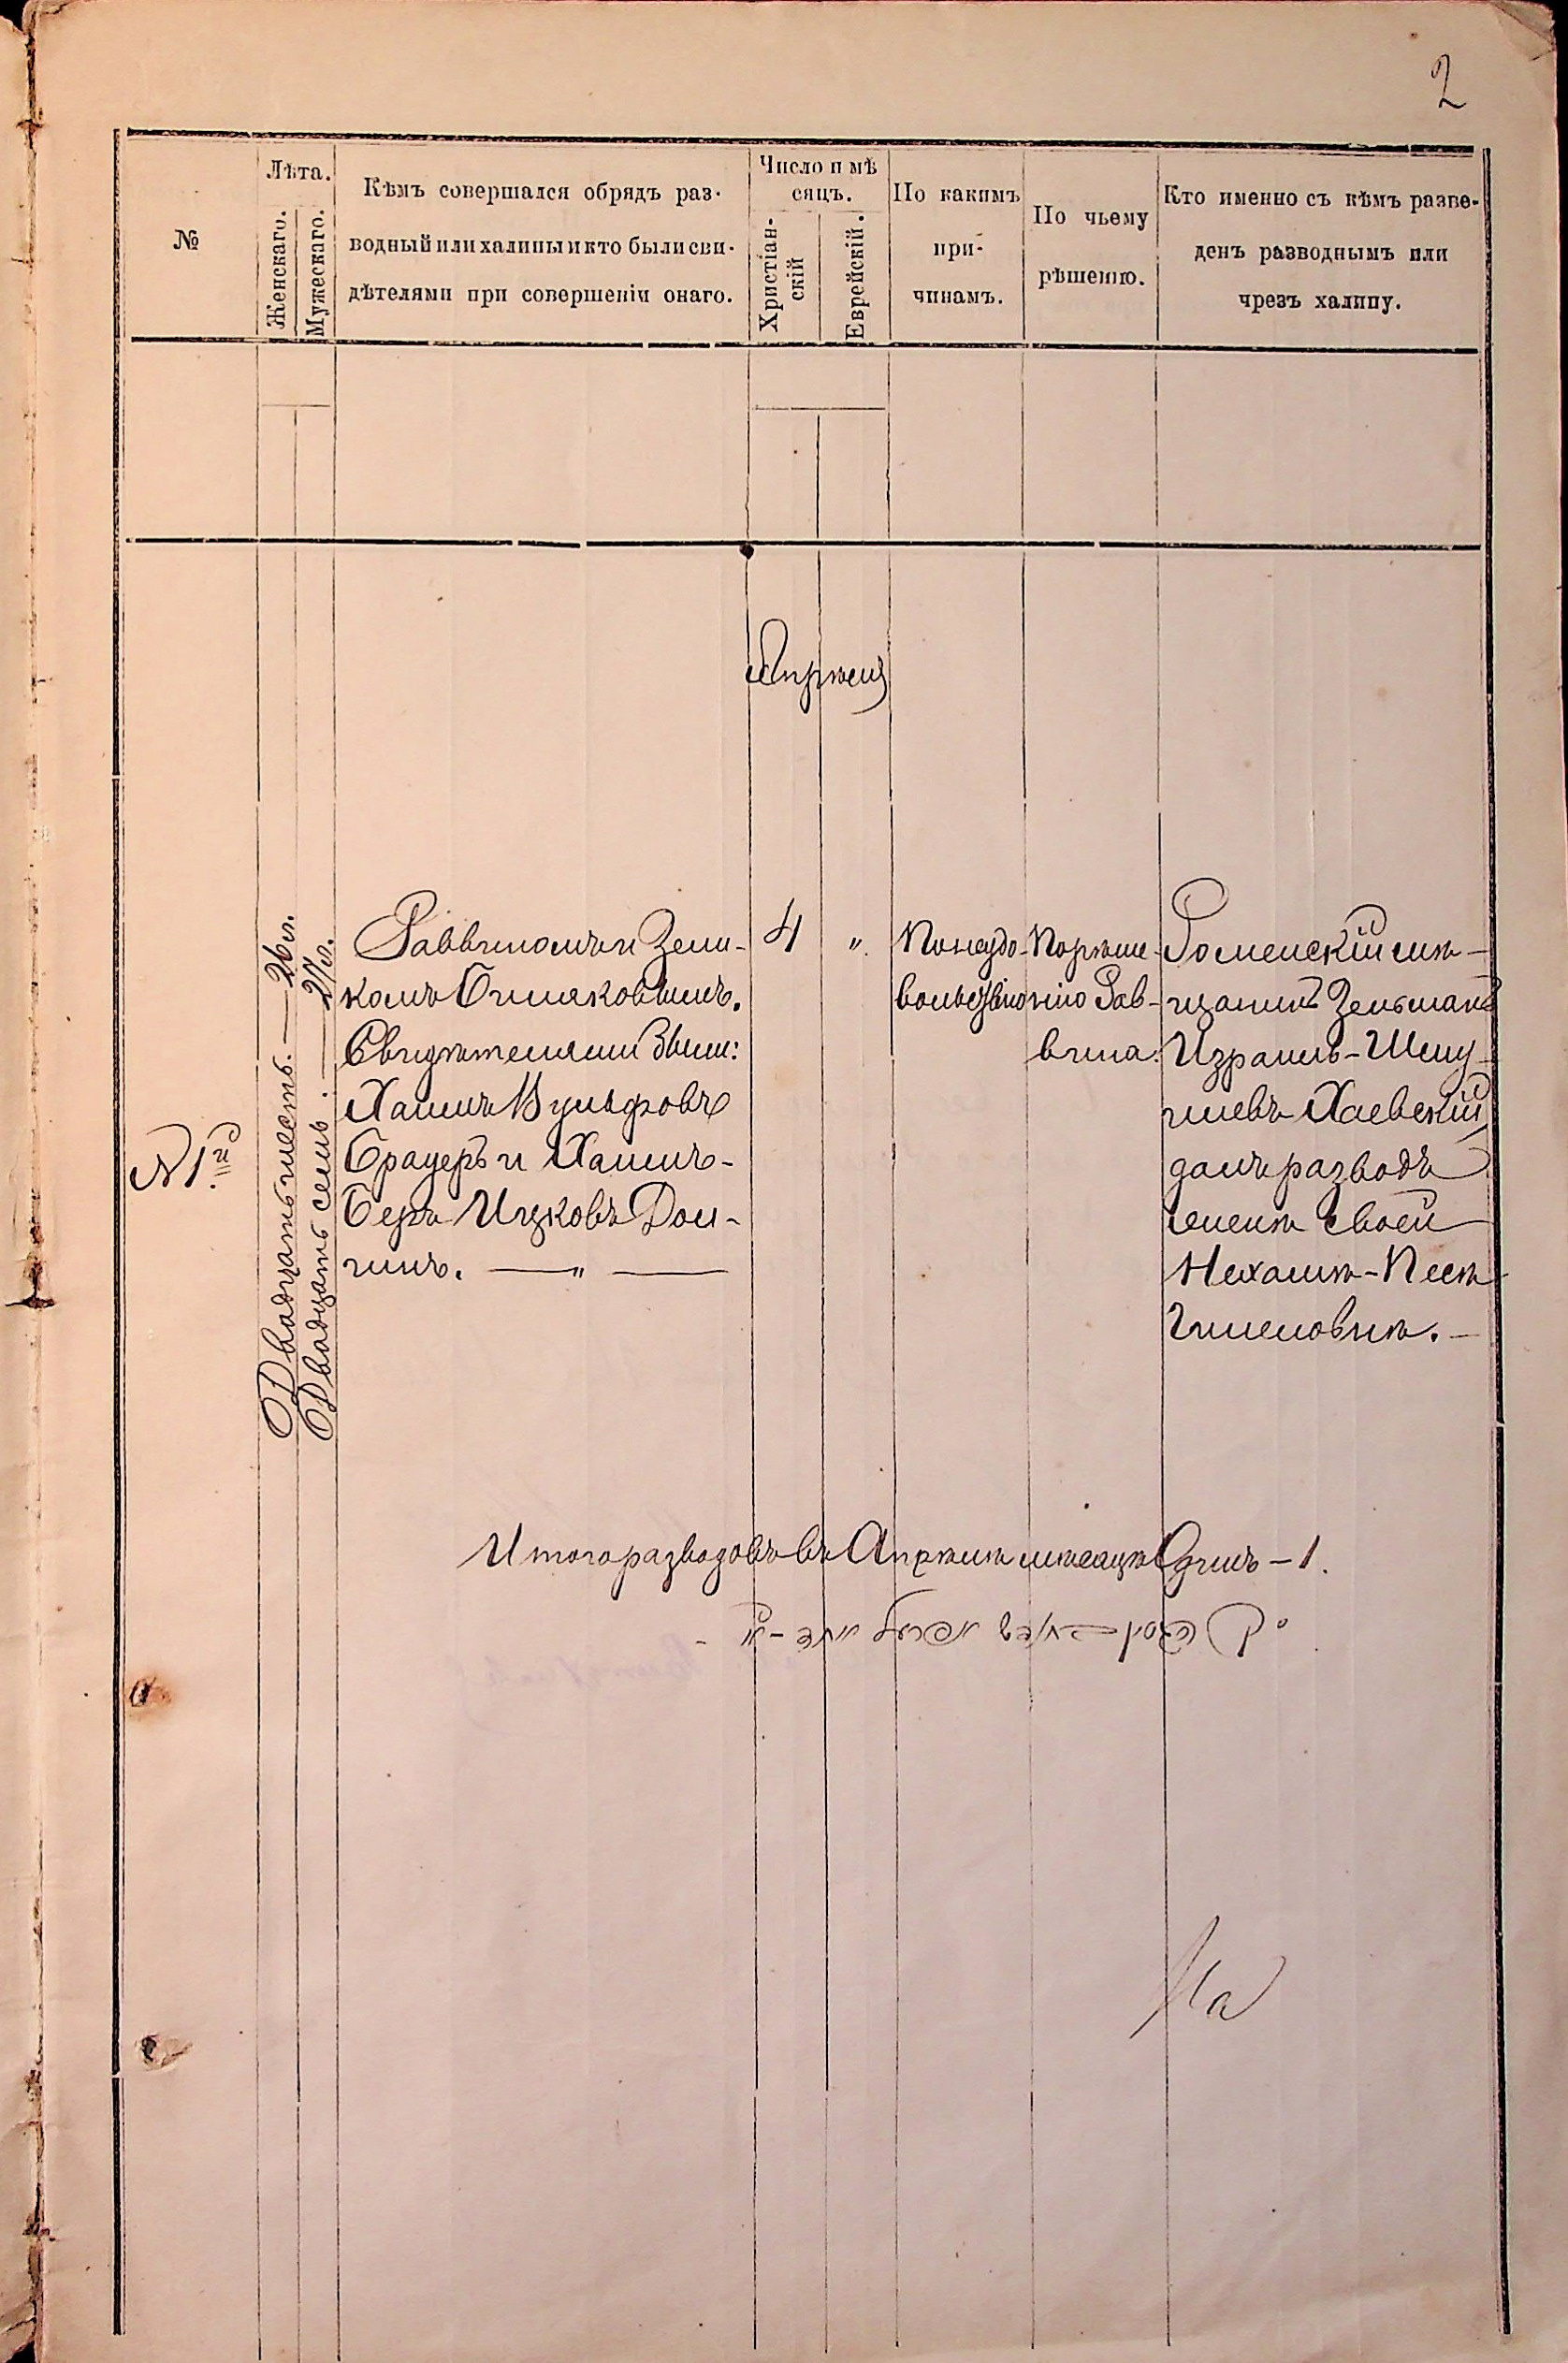 2
№
Лѣта.
Женскаго.
Мужескаго.
Кѣмъ совершался обрядъ раз-
водный или халицы и кто были сви-
дѣтелями при совершеніи онаго.
Число и мѣ
сяцъ.
Христіан-
скій
Еврейскій.
По какимъ
при-
чинамъ.
По чьему
рѣшенію.
Кто именно съ кѣмъ разве-
денъ разводнымъ или
чрезъ халицу.
Апрѣль
№ 1.й
Двадцать шесть. — 26 л.
Двадцать семь. — 27 л.
Раввиномъ и Зели-
комъ
Свидѣтелями были:
Хаимъ Вульфовъ
Брауеръ и Хаимъ-
Беръ Ицковъ Дол-
гинъ. — " —
4
".
По неудо-
вольствію
По рѣше-
нію Рав-
вина.
Роменскій мѣ-
щанинъ Зельманъ
Израиль-Шму
илевъ Хаевскій
далъ разводъ
женѣ своей
Нехамѣ-Песѣ
Итого разводовъ въ Апрѣлѣ мѣсяцѣ Одинъ – 1.
На